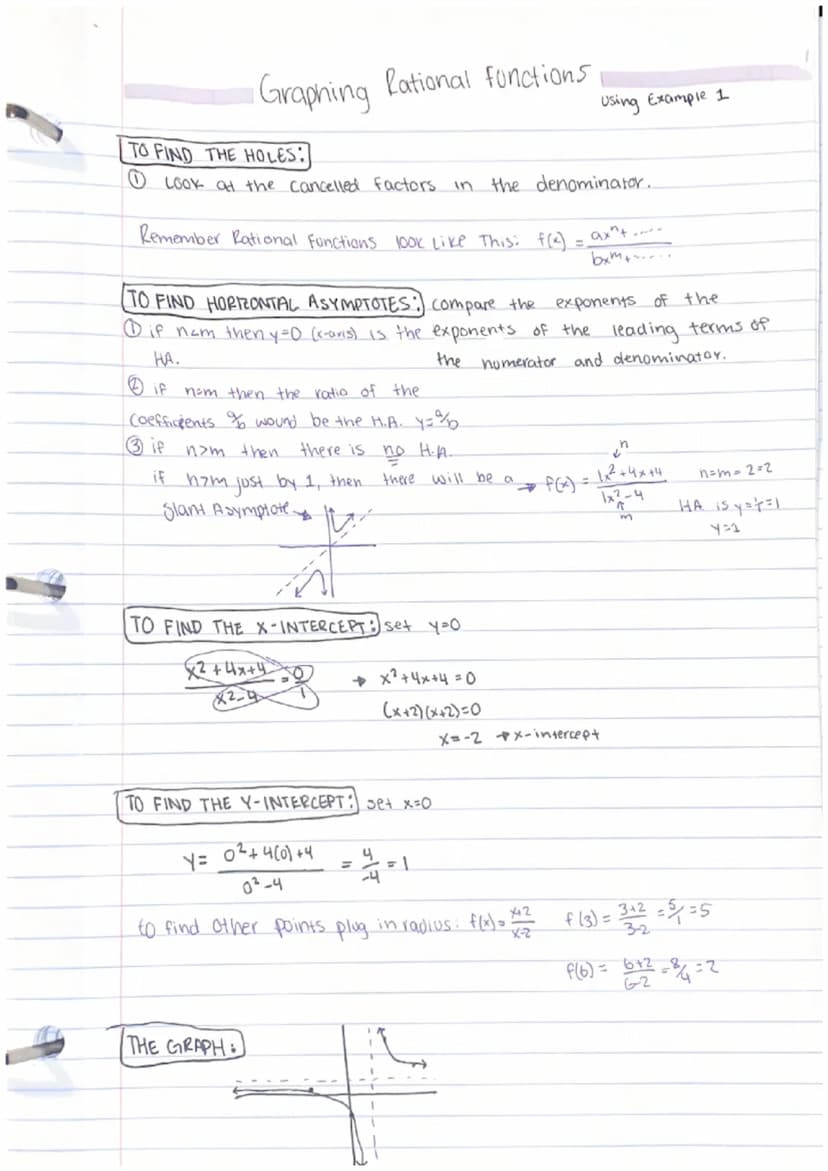 Graphing Rational Functions
Using Example 1
TO FIND THE HOLES:
① Look at the cancelled factors in the denominator.
Remember Rational Functions look Like This: f(x) = ax^n+...../bx^m+.....
TO FIND HORIZONTAL ASYMPTOTES: compare the exponents of the
exponents of the leading terms of
the numerator and denominator.
① if n<m then y=0 (x-axis) is the
HA.
② if n=m then the ratio of the
coefficients a/b wound be the H.A. y=a/b
③ if n>m then there is no H.A.
if n>m just by 1, then there will be a
Slant Asymptote
n
→ f(x) = 1x²+4x+4/1x²-4 n=m=2=2
m
HA is y=1/1=1
y=1
TO FIND THE X-INTERCEPT: set y=0
x²+4x+4/x²-4 = 0/1 → x²+4x+4=0
(x+2)(x+2)=0
x=-2 → x-intercept
TO FIND THE Y-INTERCEPT: set x=0
y= 0²+4(0)+4/0²-4 = 4/-4 = 1
to find other points plug in radius: f(x)= x+2/x-2 f(3)= 3+2/3-2 = 5/1 = 5
f(6)= 6+2/6-2 = 8/4 = 2
THE GRAPH: